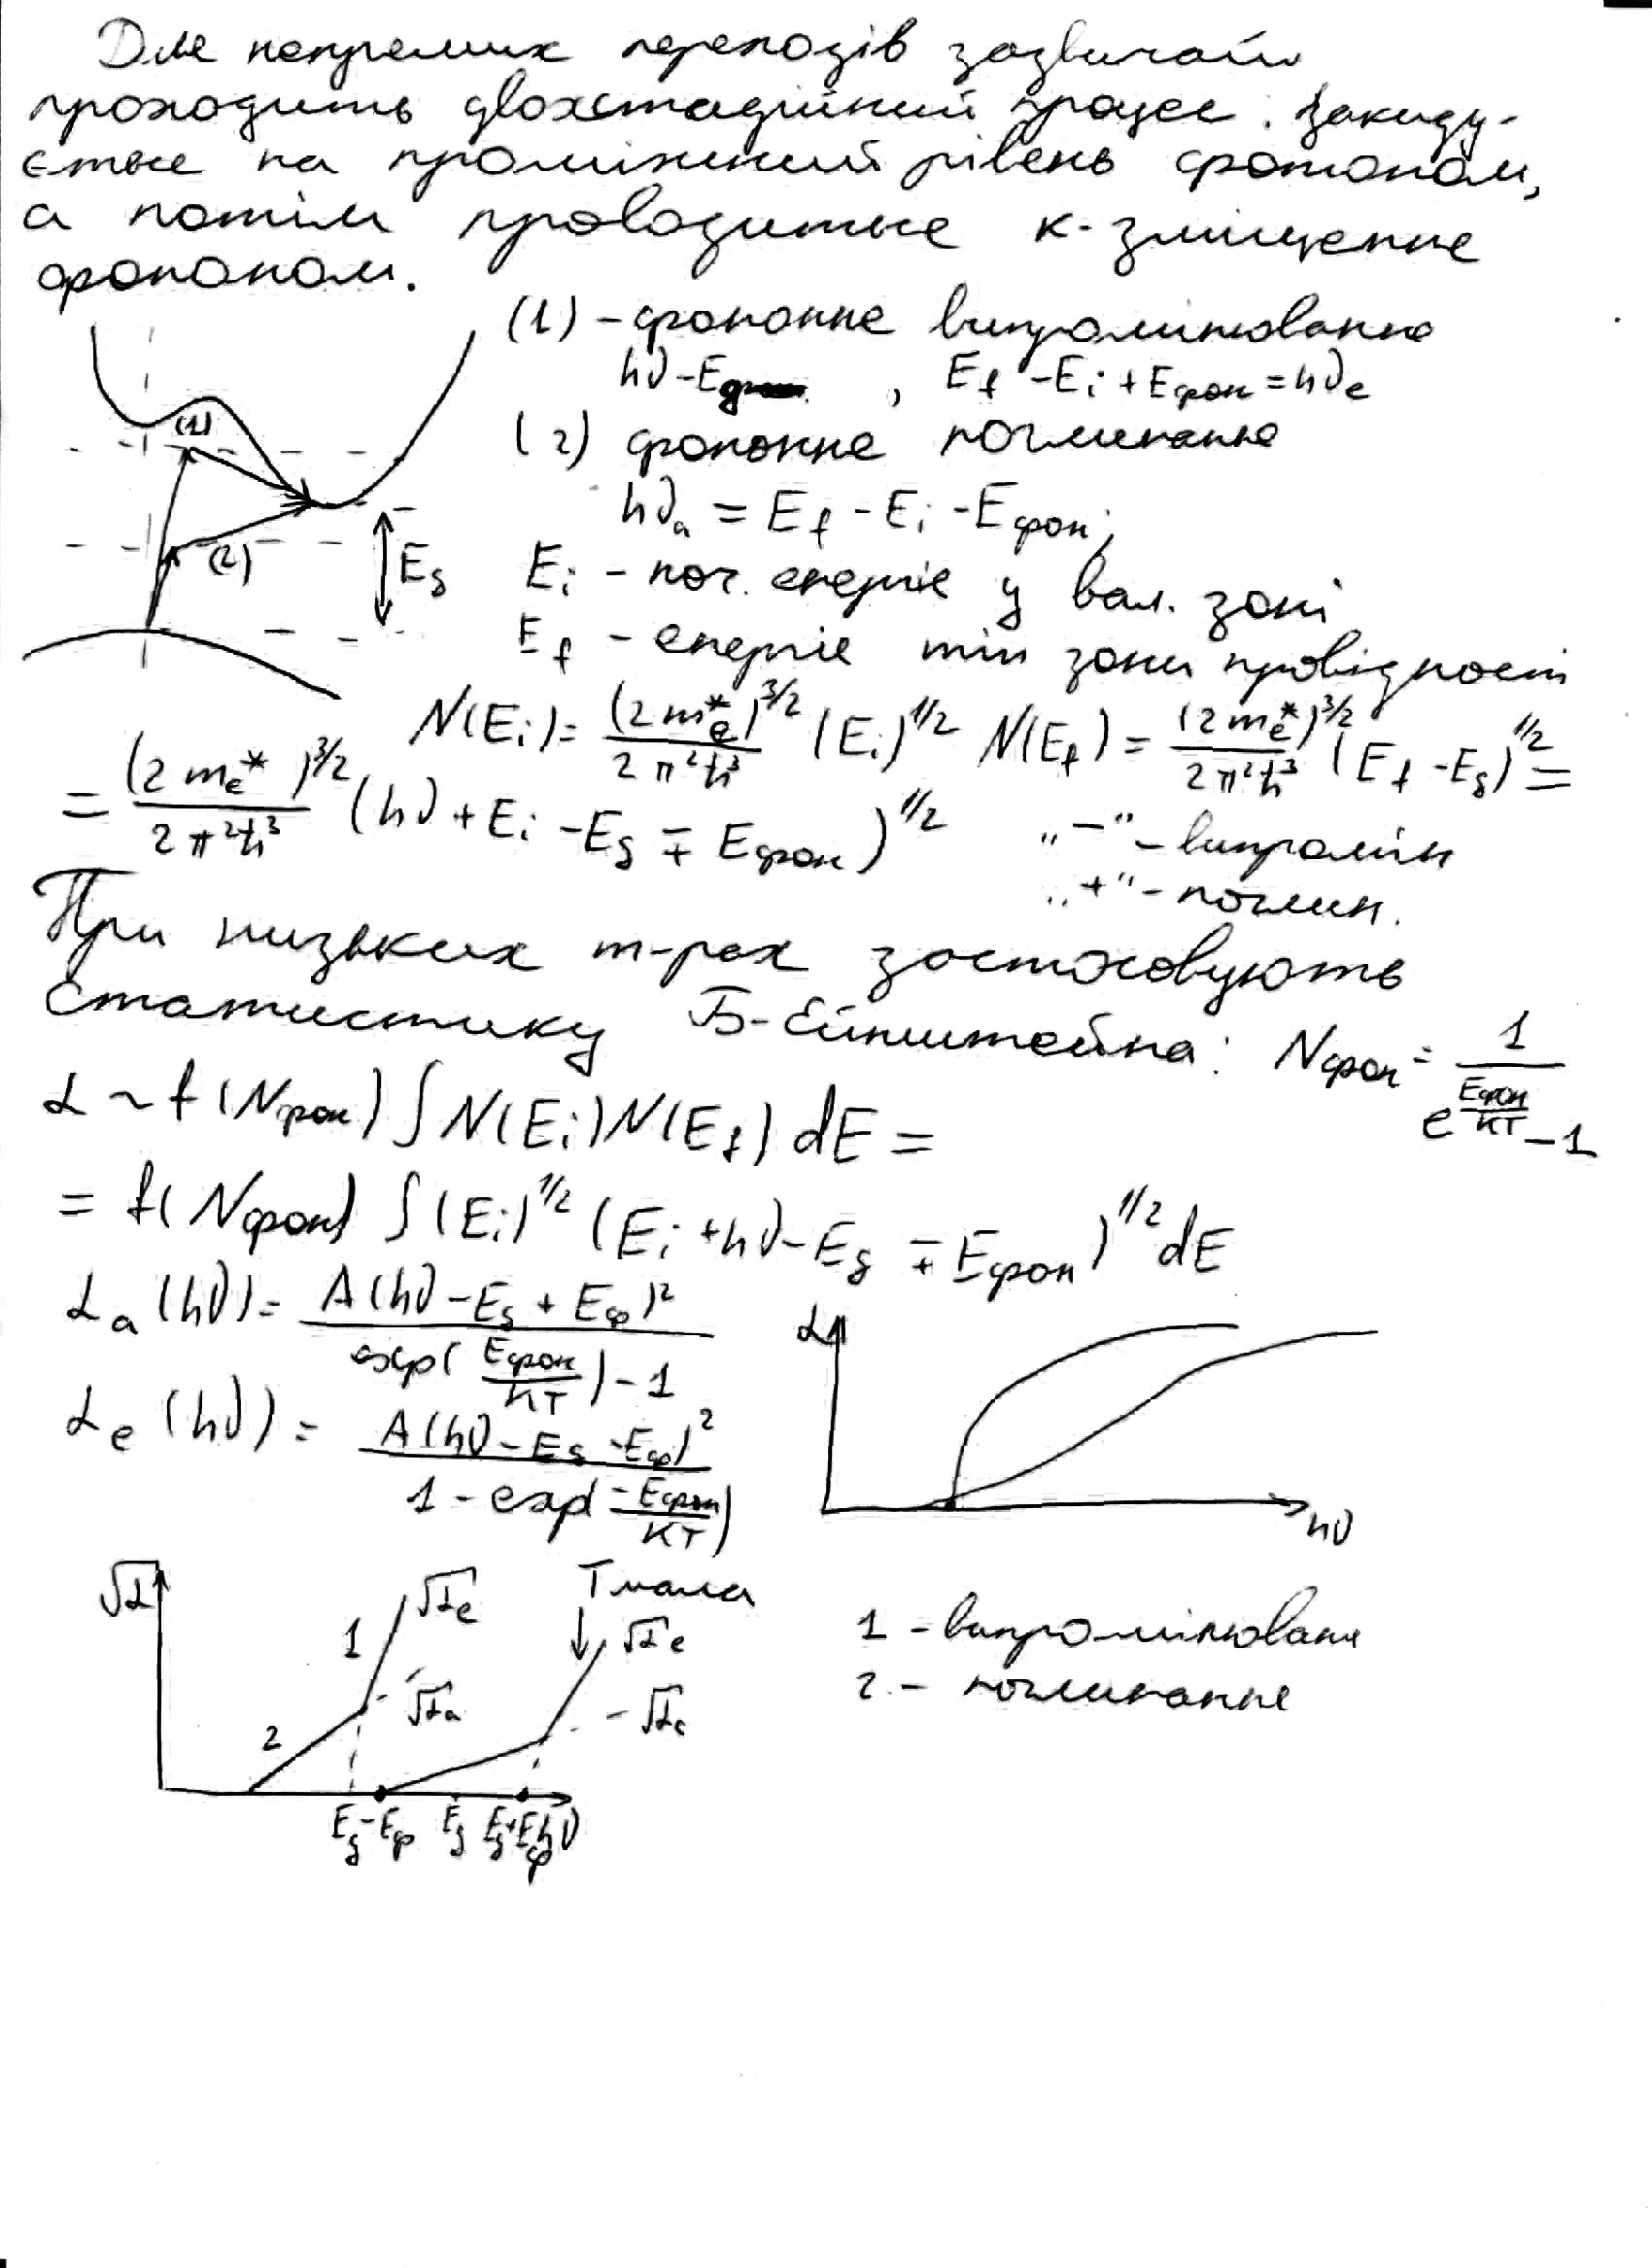 Для непрямих переходів зазвичай
проходить двохстадійний процес. Закиду-
ється на проміжний рівень фотоном,
а потім проводиться к-зміщення
фононом.
(1) - фононне випромінювання
hν - E , E_f - E_i + E_фон = hν_e
(2) фононне поглинання
hν_a = E_f - E_i - E_фон;
(1)
(2)
E_g
E_i - поч. енергія у вал. зоні
E_f - енергія min зони провідності
N(E_i) = (2m_e*)^3/2 / 2π²ħ³ (E_i)^1/2 N(E_f) = (2m_e*)^3/2 / 2π²ħ³ (E_f - E_g)^1/2 =
= (2m_e*)^3/2 / 2π²ħ³ (hν + E_i - E_g ∓ E_фон)^1/2
„-" - випромін
„+" - поглин.
При низьких т-рах застосовують
статистику Б-Ейнштейна: N_фон = 1 / e^(E_фон/кТ) - 1
α ~ f(N_фон) ∫ N(E_i) N(E_f) dE =
= f(N_фон) ∫ (E_i)^1/2 (E_i + hν - E_g ∓ E_фон)^1/2 dE
α_a (hν) = A(hν - E_g + E_ф)² / exp(E_фон/кТ) - 1
α_e (hν) = A(hν - E_g - E_ф)² / 1 - exp(-E_фон/кТ)
α
hν
√α
1
√α_e
√α_a
2
T мала
√α_e
E_g - E_ф E_g E_g + E_ф hν
1 - випромінюванн
2 - поглинання